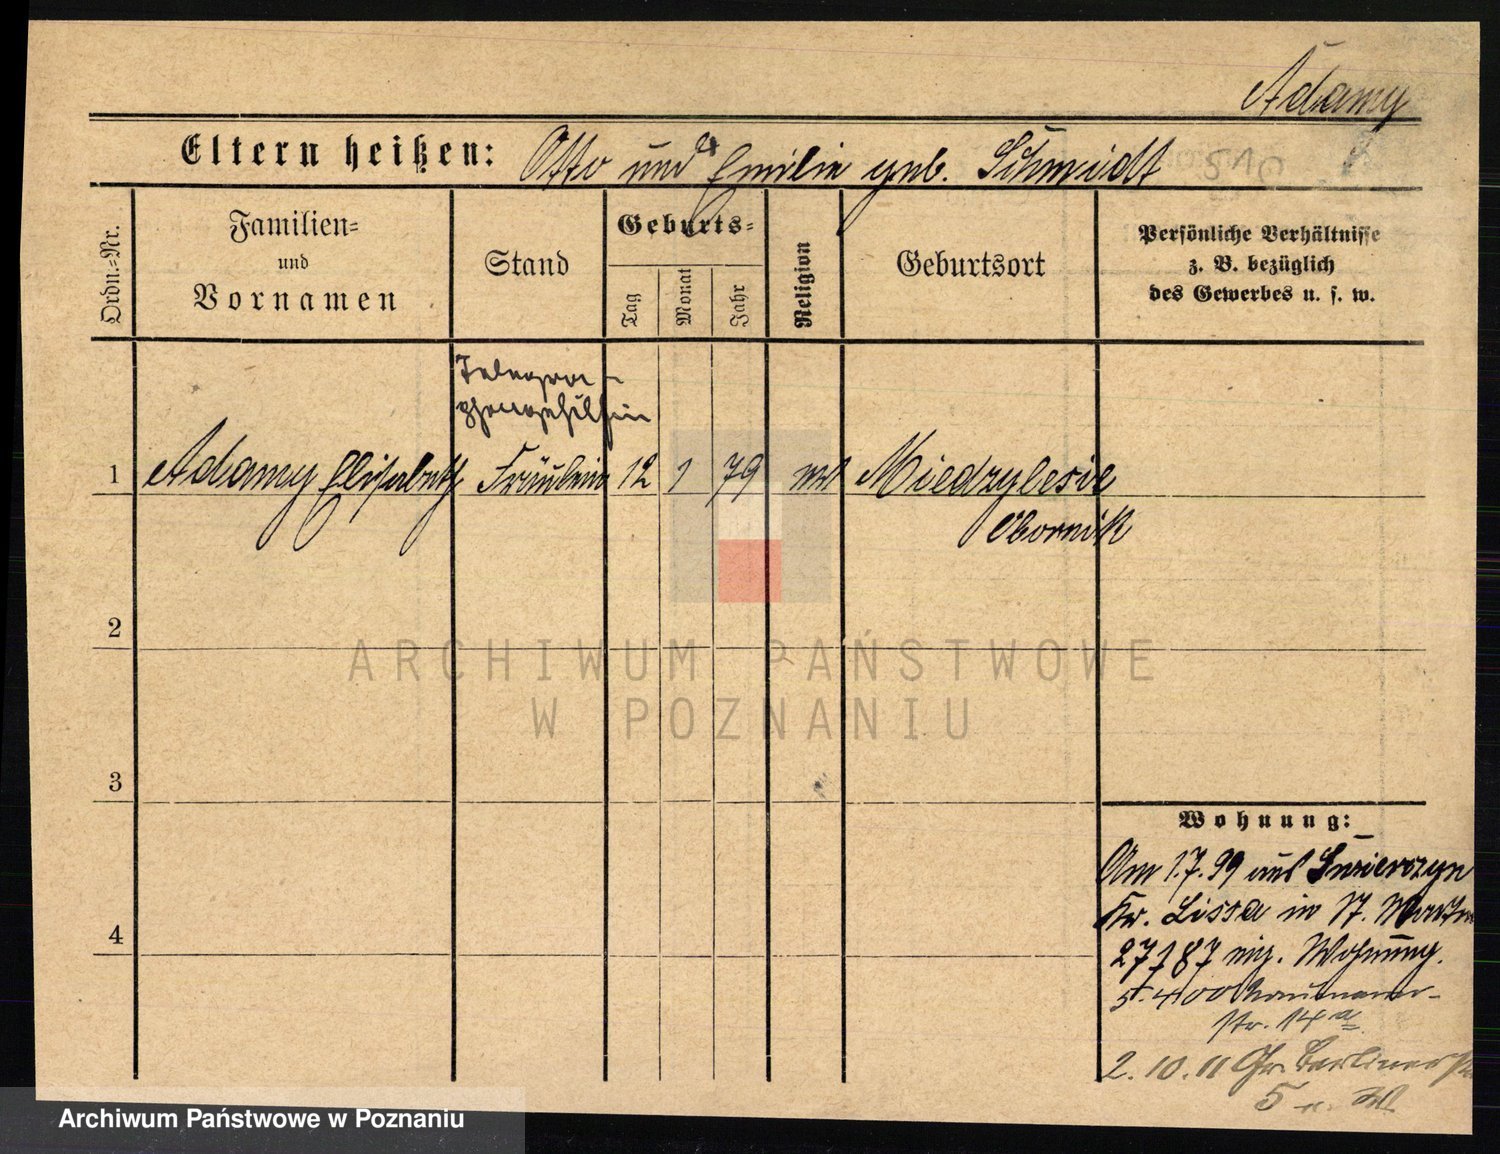 Adamy
Eltern heißen: Otto und Emilie geb. Schmidt
Ordn.=Nr.
Familien=
und
Vornamen
Stand
Geburts=
Tag
Monat
Jahr
Religion
Geburtsort
Persönliche Verhältnisse
z. B. bezüglich
des Gewerbes u. s. w.
Telegra-
phengehilfin
1 Adamy Elisabeth Fräulein 12 1 79 Miedzylesie
Obornik
2
ARCHIWUM PAŃSTWOWE
W POZNANIU
3
Wohnung:
Am 1.7.99 aus Swierczyn
Kr. Lissa in St. Martin
4
27/87 eig. Wohnung.
5.4.00 Naumann-
str. 14a
2.10.11 Gr. Berliner
5
Archiwum Państwowe w Poznaniu